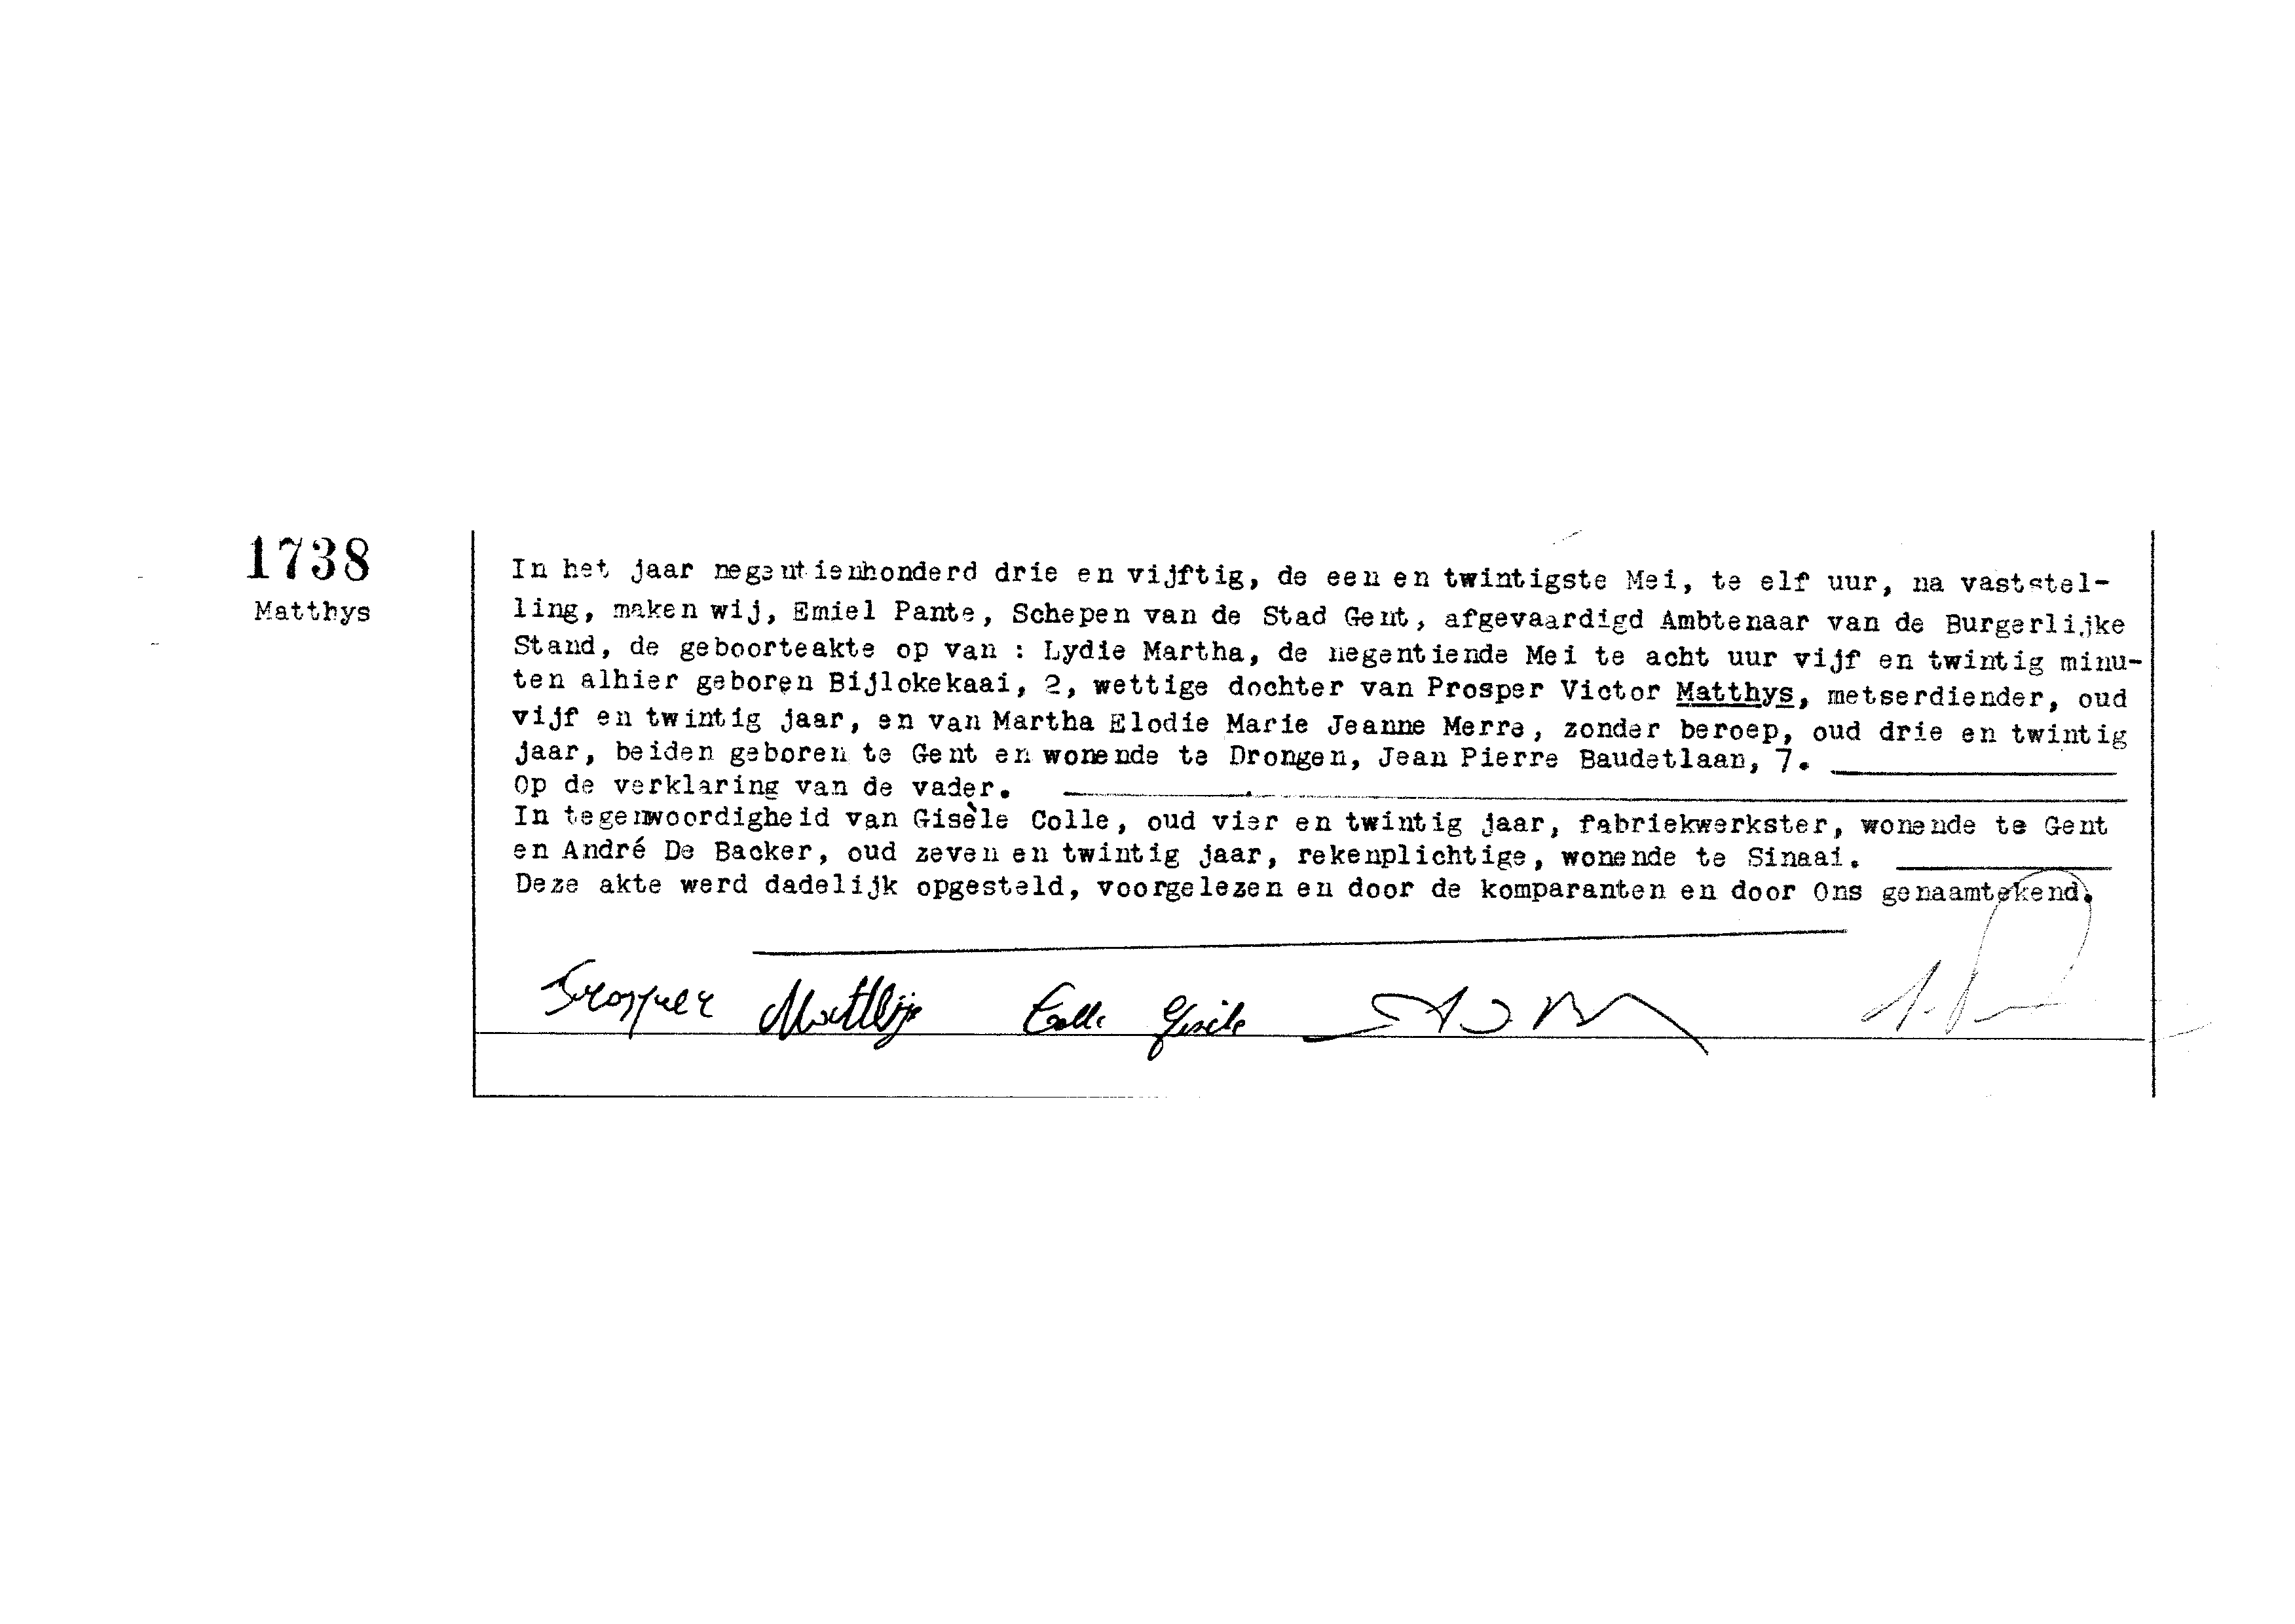 1738
Matthys
In het jaar negentienhonderd drie en vijftig, de een en twintigste Mei, te elf uur, na vaststel-
ling, maken wij, Emiel Pante, Schepen van de Stad Gent, afgevaardigd Ambtenaar van de Burgerlijke
Stand, de geboorteakte op van : Lydie Martha, de negentiende Mei te acht uur vijf en twintig minu-
ten alhier geboren Bijlokekaai, 2, wettige dochter van Prosper Victor Matthys, metserdiender, oud
vijf en twintig jaar, en van Martha Elodie Marie Jeanne Merre, zonder beroep, oud drie en twintig
jaar, beiden geboren te Gent en wonende te Drongen, Jean Pierre Baudetlaan, 7.
Op de verklaring van de vader.
In tegenwoordigheid van Gisèle Colle, oud vier en twintig jaar, fabriekwerkster, wonende te Gent
en André De Backer, oud zeven en twintig jaar, rekenplichtige, wonende te Sinaai.
Deze akte werd dadelijk opgesteld, voorgelezen en door de komparanten en door Ons genaamtekend.
Prosper Matthijs Colle Gisèle